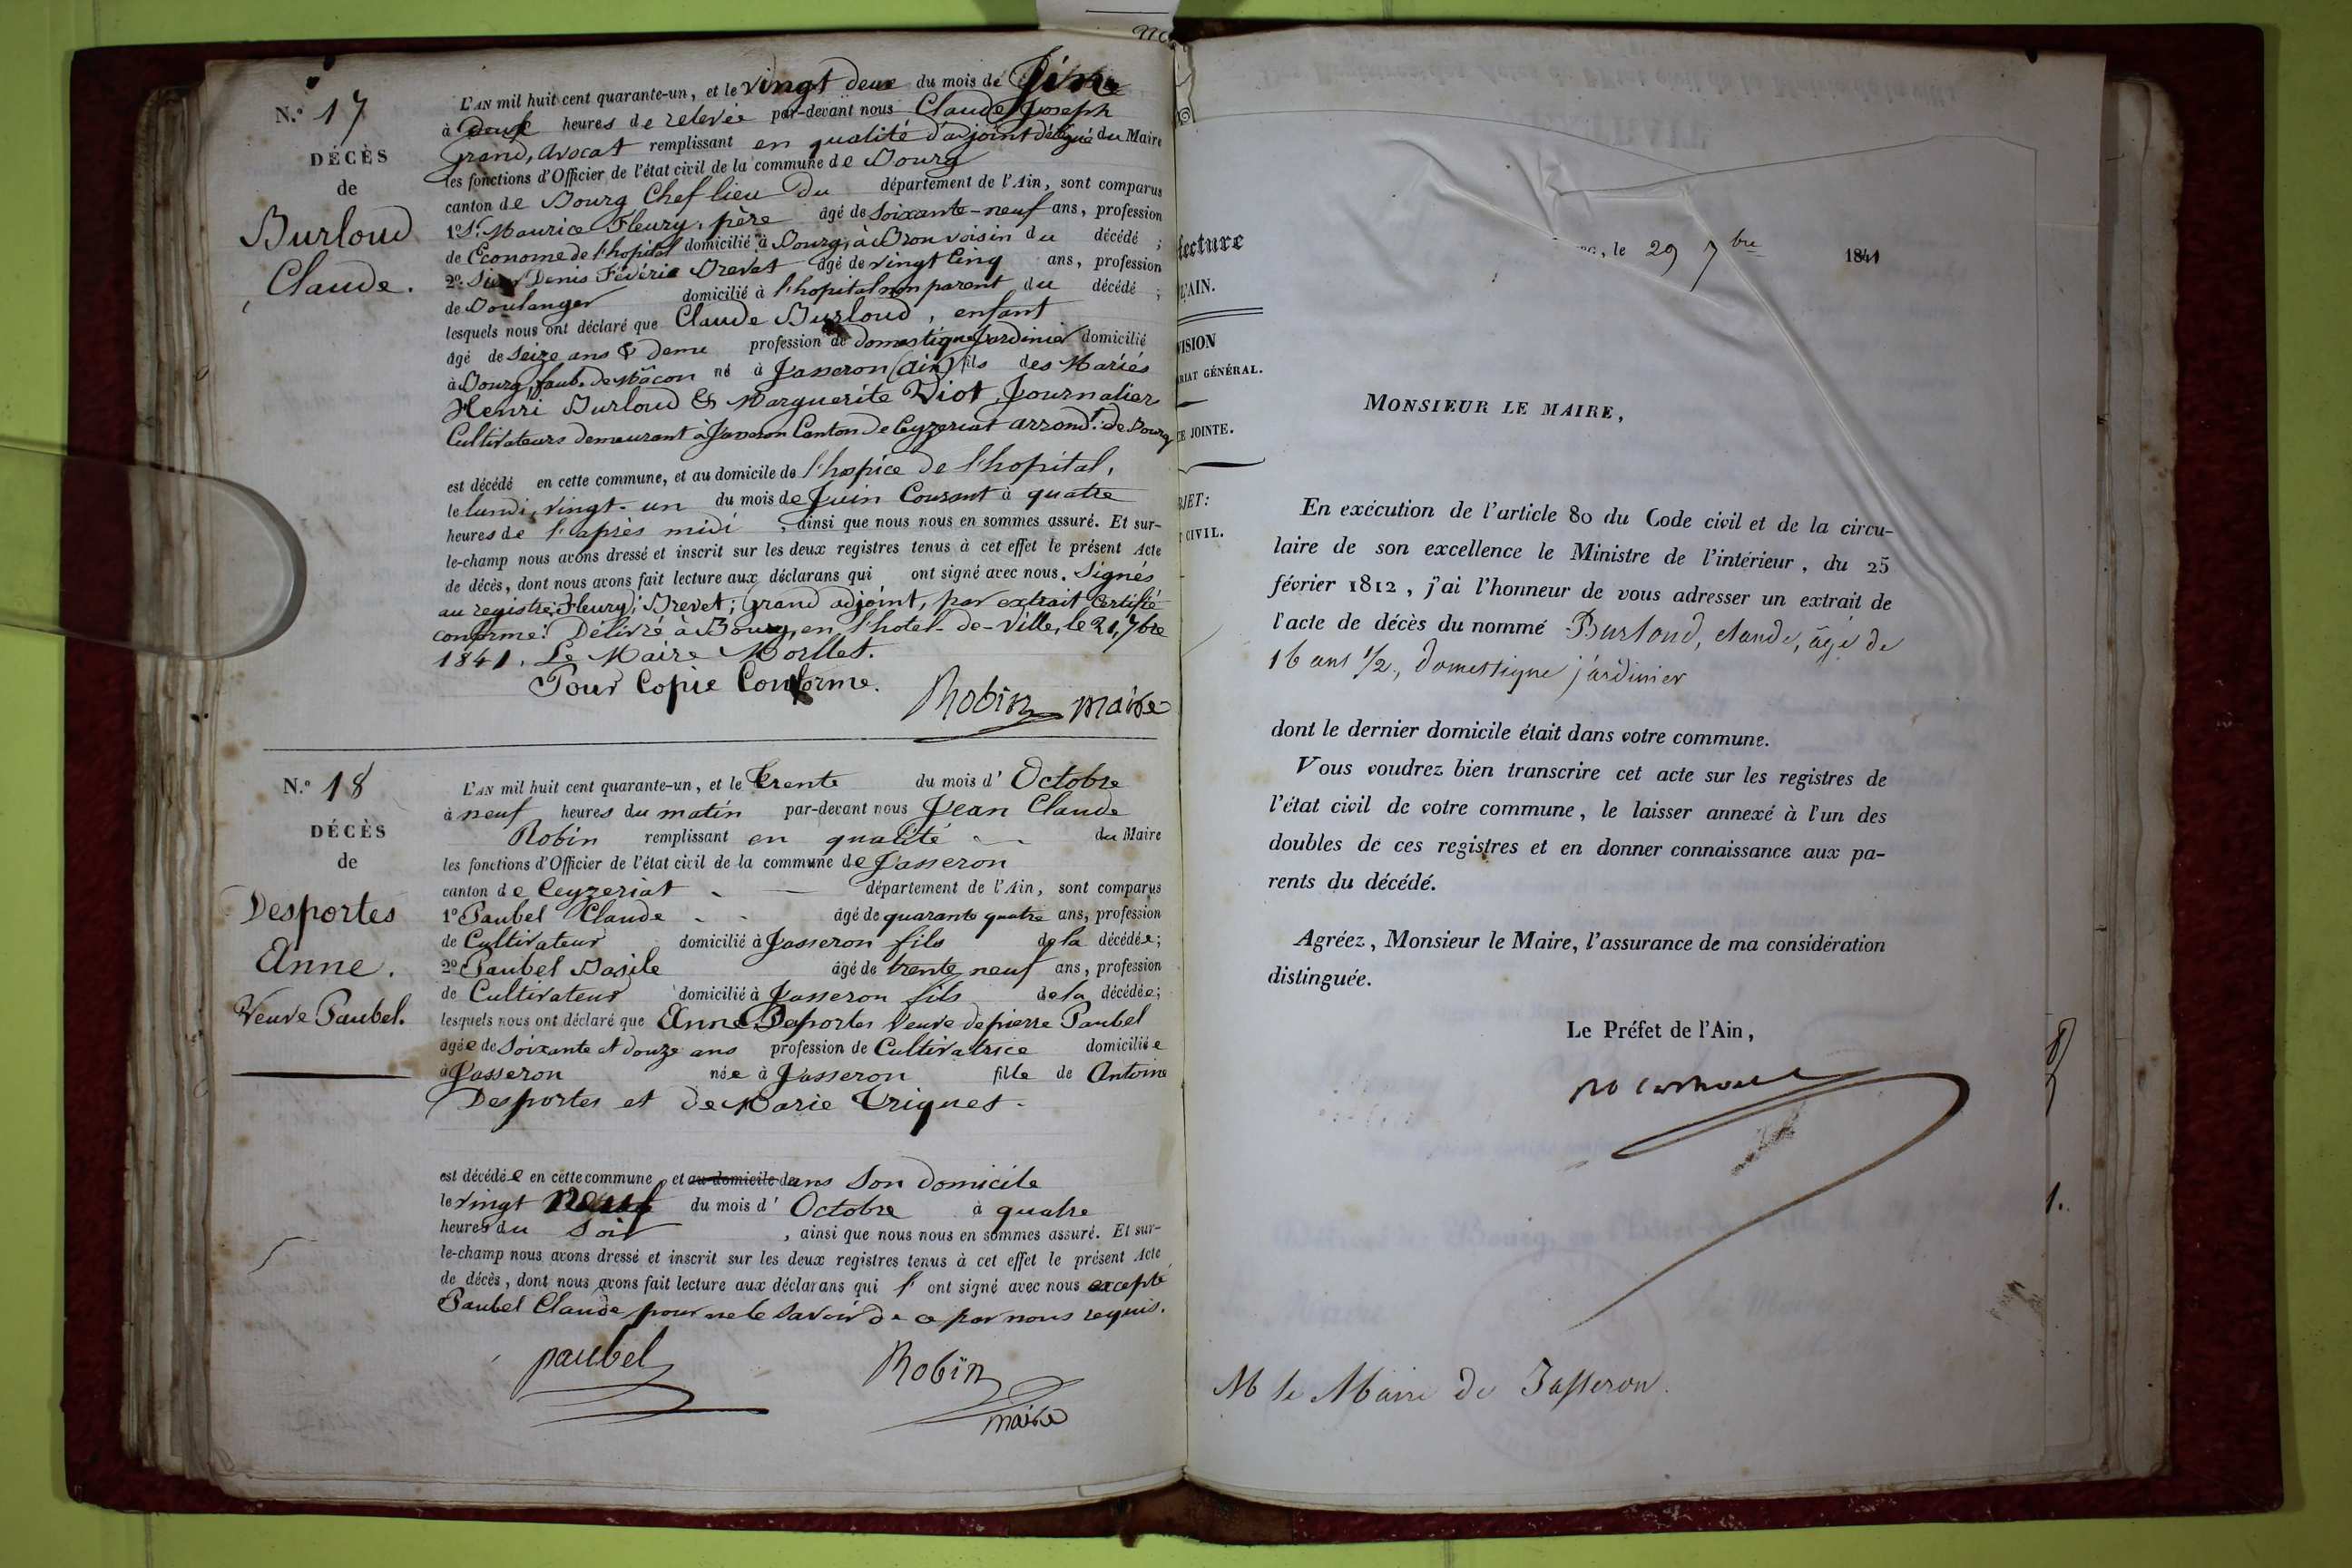 N.º 17
DÉCÈS
de
Burloud
Claude.
L'AN mil huit cent quarante-un, et le vingt deux du mois de Juin
à deux heures de relevée par-devant nous Claude Joseph
Grand, avocat remplissant en qualité d'adjoint délégué du Maire
les fonctions d'Officier de l'état civil de la commune de Bourg
canton de Bourg Chef lieu du département de l'Ain, sont comparus
1º Sr. Maurice Fleury, père âgé de soixante-neuf ans, profession
de Econome de l'hopital domicilié à Bourg, à Brou voisin du décédé ;
2º. Sieur Denis Brevet âgé de vingt cinq ans, profession
de Boulanger domicilié à l'hopital non parent du décédé ;
lesquels nous ont déclaré que Claude Burloud, enfant
âgé de seize ans & demi profession de domestique Jardinier domicilié
à Bourg, faub. de Mâcon né à Jasseron (ain) fils des Mariés
Henri Burloud & Marguerite Diot, Journalier
Cultivateurs demeurant à Jasseron Canton de Ceyzeriat arrondt. de Bourg
est décédé en cette commune, et au domicile de l'hospice de l'hopital,
le lundi, vingt-un du mois de Juin Courant à quatre
heures de l'après midi, ainsi que nous nous en sommes assuré. Et sur-
le-champ nous avons dressé et inscrit sur les deux registres tenus à cet effet le présent Acte
de décès, dont nous avons fait lecture aux déclarans qui ont signé avec nous. Signés
au registre: Fleury; Brevet; Grand adjoint, par extrait Certifié
conforme: Délivré à Bourg, en l'hotel-de-Ville, le 21, 7bre
1841. Le Maire Morllet.
Pour Copie Conforme.
Robin maire
N.º 18
DÉCÈS
de
Desportes
Anne.
Veuve Paubel.
L'AN mil huit cent quarante-un, et le trente du mois d' Octobre
à neuf heures du matin par-devant nous Jean Claude
Robin remplissant en qualité du Maire
les fonctions d'Officier de l'état civil de la commune de Jasseron
canton de Ceyzeriat département de l'Ain, sont comparus
1º Paubel Claude âgé de quarante quatre ans, profession
de Cultivateur domicilié à Jasseron fils de la décédée;
2º Paubel Basile âgé de trente neuf ans, profession
de Cultivateur domicilié à Jasseron fils de la décédée;
lesquels nous ont déclaré que Anne Desportes Veuve de pierre Paubel
agée de Soixante et douze ans profession de Cultivatrice domiciliée
à Jasseron née à Jasseron fille de Antoine
Desportes et de Marie Triquet.
est décédée en cette commune et au domicile dans Son domicile
le vingt neuf du mois d' Octobre à quatre
heures du Soir, ainsi que nous nous en sommes assuré. Et sur-
le-champ nous avons dressé et inscrit sur les deux registres tenus à cet effet le présent Acte
de décès, dont nous avons fait lecture aux déclarans qui l' ont signé avec nous excepté
Paubel Claude pour ne le savoir de ce par nous requis.
paubel
Robin
maire
fecture
L'AIN.
VISION
RIAT GÉNÉRAL.
CE JOINTE.
BJET:
T CIVIL.
, le 29 7bre 1841
MONSIEUR LE MAIRE,
En exécution de l'article 80 du Code civil et de la circu-
laire de son excellence le Ministre de l'intérieur, du 25
février 1812, j'ai l'honneur de vous adresser un extrait de
l'acte de décès du nommé Burloud, claude, âgé de
16 ans 1/2, domestique jardinier
dont le dernier domicile était dans votre commune.
Vous voudrez bien transcrire cet acte sur les registres de
l'état civil de votre commune, le laisser annexé à l'un des
doubles de ces registres et en donner connaissance aux pa-
rents du décédé.
Agréez, Monsieur le Maire, l'assurance de ma considération
distinguée.
Le Préfet de l'Ain,
M le Maire de Jasseron.